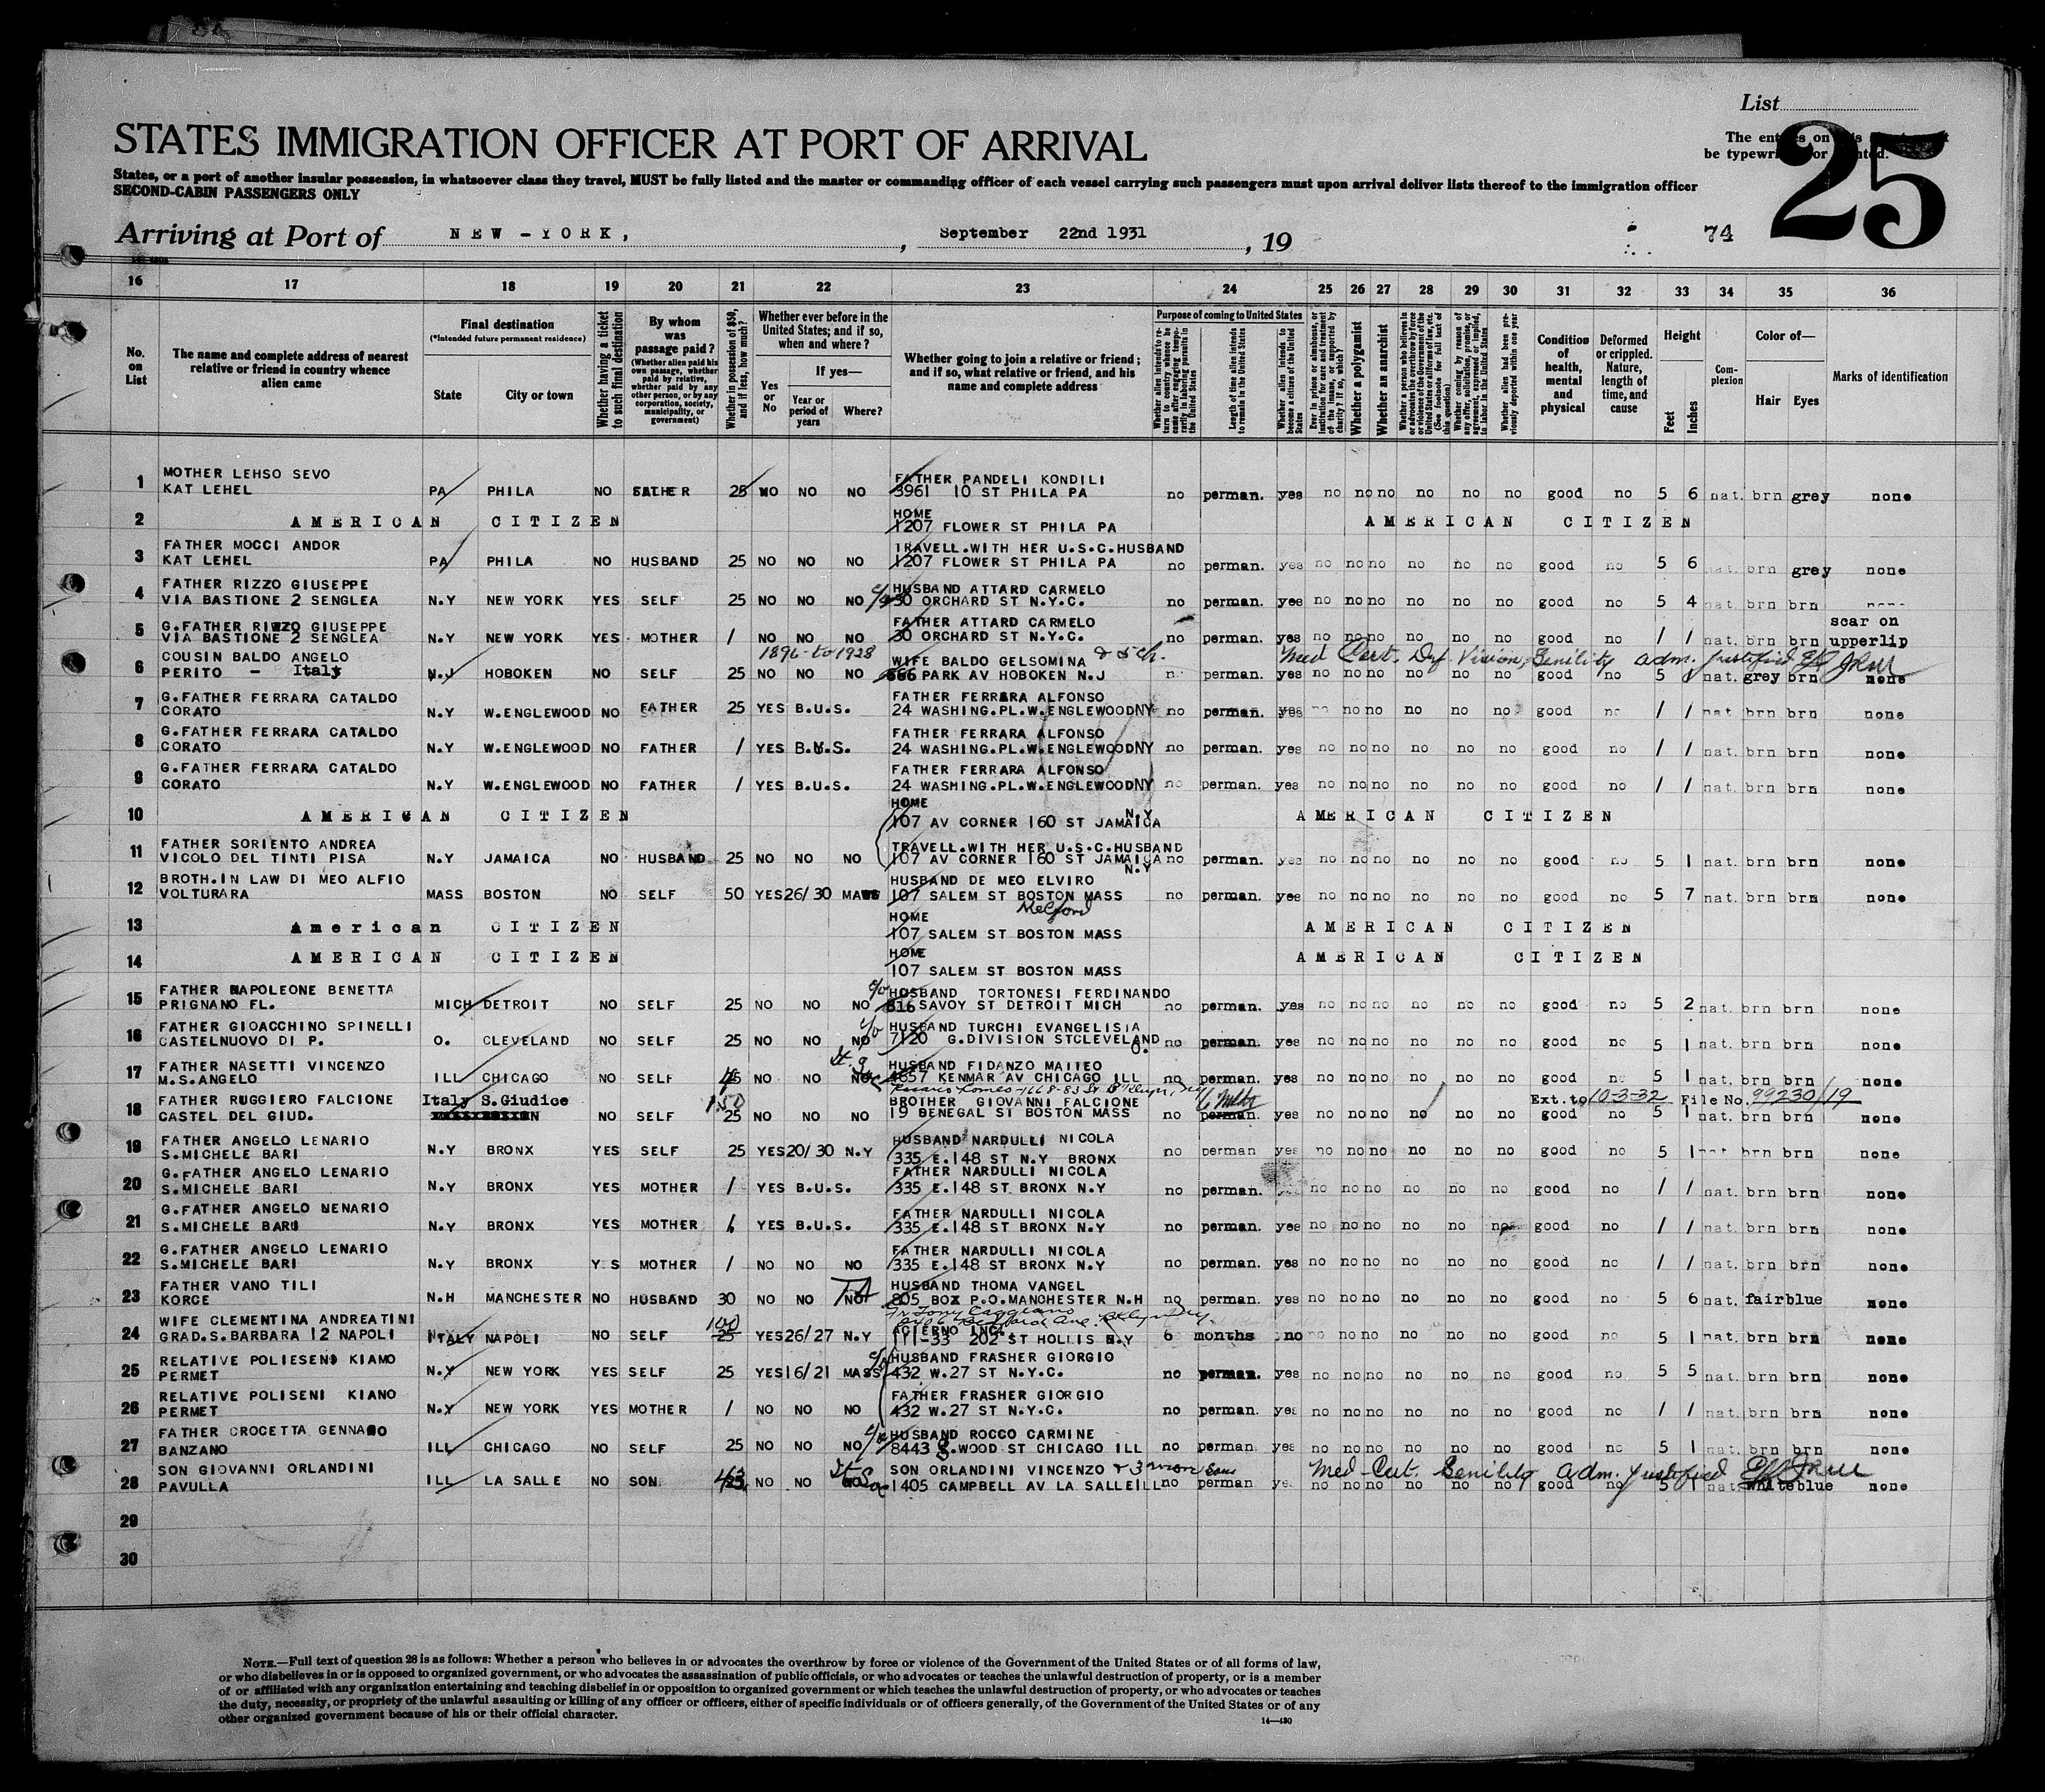 List
25
The entries on this
be typewritten or printed.
STATES IMMIGRATION OFFICER AT PORT OF ARRIVAL
States, or a port of another insular possession, in whatsoever class they travel, MUST be fully listed and the master or commanding officer of each vessel carrying such passengers must upon arrival deliver lists thereof to the immigration officer
SECOND-CABIN PASSENGERS ONLY
Arriving at Port of NEW-YORK, , September 22nd 1931 , 19
74
16 17 18 19 20 21 22 23 24 25 26 27 28 29 30 31 32 33 34 35 36
No. on List
The name and complete address of nearest relative or friend in country whence alien came
Final destination (*Intended future permanent residence)
State City or town
Whether having a ticket to such final destination
By whom was passage paid? (Whether alien paid his own passage, whether paid by relative, whether paid by any other person, or by any corporation, society, municipality, or government)
Whether in possession of $50, and if less, how much?
Whether ever before in the United States; and if so, when and where?
If yes—
Yes or No Year or period of years Where?
Whether going to join a relative or friend; and if so, what relative or friend, and his name and complete address
Purpose of coming to United States
Length of time alien intends to remain in the United States
Whether alien intends to become a citizen of the United States
Whether a polygamist
Whether an anarchist
Condition of health, mental and physical
Deformed or crippled. Nature, length of time, and cause
Height
Feet Inches
Complexion
Color of—
Hair Eyes
Marks of identification
1 MOTHER LEHSO SEVO FATHER PANDELI KONDILI
KAT LEHEL PA PHILA NO FATHER 25 NO NO NO 3961 10 ST PHILA PA no perman. yes no no no no no no good no 5 6 nat. brn grey none
2 AMERICAN CITIZEN HOME
1207 FLOWER ST PHILA PA AMERICAN CITIZEN
3 FATHER MOCCI ANDOR TRAVELL.WITH HER U.S.C.HUSBAND
KAT LEHEL PA PHILA NO HUSBAND 25 NO NO NO 1207 FLOWER ST PHILA PA no perman. yes no no no no no no good no 5 6 nat. brn grey none
4 FATHER RIZZO GIUSEPPE c/o HUSBAND ATTARD CARMELO
VIA BASTIONE 2 SENGLEA N.Y NEW YORK YES SELF 25 NO NO NO 30 ORCHARD ST N.Y.C. no perman. yes no no no no no no good no 5 4 nat. brn brn
5 G.FATHER RIZZO GIUSEPPE FATHER ATTARD CARMELO scar on
VIA BASTIONE 2 SENGLEA N.Y NEW YORK YES MOTHER / NO NO NO 30 ORCHARD ST N.Y.C. no perman. yes no no no no no no good no / / nat. brn brn upperlip
1896-to 1928
6 COUSIN BALDO ANGELO WIFE BALDO GELSOMINA & 5 ch. Med Cert. Def Vision, Senility adm. justified
PERITO - Italy N.J HOBOKEN NO SELF 25 NO NO NO 666 PARK AV HOBOKEN N.J perman. yes no no no no no no good no 5 1 nat. grey brn none
7 G.FATHER FERRARA CATALDO FATHER FERRARA ALFONSO
CORATO N.Y W.ENGLEWOOD NO FATHER 25 YES B.U.S. 24 WASHING.PL.W.ENGLEWOODNY no perman. yes no no no no no no good no / / nat. brn brn none
8 G.FATHER FERRARA CATALDO FATHER FERRARA ALFONSO
CORATO N.Y W.ENGLEWOOD NO FATHER / YES B.U.S. 24 WASHING.PL.W.ENGLEWOODNY no perman. yes no no no no no no good no / / nat. brn brn none
9 G.FATHER FERRARA CATALDO FATHER FERRARA ALFONSO
CORATO N.Y W.ENGLEWOOD NO FATHER / YES B.U.S. 24 WASHING.PL.W.ENGLEWOODNY no perman. yes no no no no no no good no / / nat. brn brn none
10 AMERICAN CITIZEN HOME N.Y
107 AV CORNER 160 ST JAMAICA AMERICAN CITIZEN
11 FATHER SORIENTO ANDREA TRAVELL.WITH HER U.S.C.HUSBAND
VICOLO DEL TINTI PISA N.Y JAMAICA NO HUSBAND 25 NO NO NO 107 AV CORNER 160 ST JAMAICA N.Y no perman. yes no no no no no no good no 5 1 nat. brn brn none
12 BROTH.IN LAW DI MEO ALFIO HUSBAND DE MEO ELVIRO
VOLTURARA MASS BOSTON NO SELF 50 YES 26/30 MASS 107 SALEM ST BOSTON MASS no perman. yes no no no no no no good no 5 7 nat. brn brn none
13 American CITIZEN HOME
107 SALEM ST BOSTON MASS AMERICAN CITIZEN
14 AMERICAN CITIZEN HOME
107 SALEM ST BOSTON MASS AMERICAN CITIZEN
15 FATHER NAPOLEONE BENETTA c/o HUSBAND TORTONESI FERDINANDO
PRIGNANO FL. MICH DETROIT NO SELF 25 NO NO NO 816 SAVOY ST DETROIT MICH no perman. yes no no no no no no good no 5 2 nat. brn brn none
16 FATHER GIOACCHINO SPINELLI c/o HUSBAND TURCHI EVANGELISIA
CASTELNUOVO DI P. O. CLEVELAND NO SELF 25 NO NO NO 7120 G.DIVISION STCLEVELAND O. no perman. yes no no no no no no good no 5 1 nat. brn brn none
17 FATHER NASETTI VINCENZO HUSBAND FIDANZO MATTEO
M.S.ANGELO ILL CHICAGO NO SELF NO NO NO 4657 KENMAR AV CHICAGO ILL no perman. yes no no no no no no good no 5 1 nat. brn brn none
18 FATHER RUGGIERO FALCIONE Italy S.Giudice 150 BROTHER GIOVANNI FALCIONE Ext.to 10-3-32 File No. 99230/19
CASTEL DEL GIUD. NO SELF 25 NO NO NO 19 BENEGAL ST BOSTON MASS no perman. yes no no no no no no good no 5 1 nat. brn brn none
19 FATHER ANGELO LENARIO HUSBAND NARDULLI NICOLA
S.MICHELE BARI N.Y BRONX YES SELF 25 YES 20/30 N.Y 335 E.148 ST N.Y BRONX no perman yes no no no no no no good no 5 1 nat brn brn none
20 G.FATHER ANGELO LENARIO FATHER NARDULLI NICOLA
S.MICHELE BARI N.Y BRONX YES MOTHER / YES B.U.S. 335 E.148 ST BRONX N.Y no perman. no no no no no no good no / / nat. brn brn none
21 G.FATHER ANGELO NENARIO FATHER NARDULLI NICOLA
S.MICHELE BARI N.Y BRONX YES MOTHER / YES B.U.S. 335 E.148 ST BRONX N.Y no perman. yes no no no no no no good no / / nat. brn brn none
22 G.FATHER ANGELO LENARIO FATHER NARDULLI NICOLA
S.MICHELE BARI N.Y BRONX Y S MOTHER / NO NO NO 335 E.148 ST BRONX N.Y no perman. yes no no no no no no good no / / nat. brn brn none
23 FATHER VANO TILI HUSBAND THOMA VANGEL
KORCE N.H MANCHESTER NO HUSBAND 30 NO NO NO 805 BOX P.O.MANCHESTER N.H no perman. yes no no no no no no good no 5 6 nat. fair blue none
24 WIFE CLEMENTINA ANDREATINI 100
GRAD.S.BARBARA 12 NAPOLI ITALY NAPOLI NO SELF 25 YES 26/27 N.Y 111-33 202 ST HOLLIS N.Y 6 months no no no no no no no good no 5 1 nat. brn brn none
25 RELATIVE POLIESENI KIAMO c/o HUSBAND FRASHER GIORGIO
PERMET N.Y NEW YORK YES SELF 25 YES 16/21 MASS 432 W.27 ST N.Y.C. no perman. yes no no no no no no good no 5 5 nat. brn brn none
26 RELATIVE POLISENI KIANO FATHER FRASHER GIORGIO
PERMET N.Y NEW YORK YES MOTHER / NO NO NO 432 W.27 ST N.Y.C. no perman. yes no no no no no no good no / / nat. brn brn none
27 FATHER CROCETTA GENNARO c/o HUSBAND ROCCO CARMINE
BANZANO ILL CHICAGO NO SELF 25 NO NO NO 8443 S.WOOD ST CHICAGO ILL no perman. yes no no no no no no good no 5 1 nat. brn brn none
28 SON GIOVANNI ORLANDINI SON ORLANDINI VINCENZO & 3 more Sons Med-Cert. Senility adm. justified
PAVULLA ILL LA SALLE NO SON NO NO 1405 CAMPBELL AV LA SALLEILL no perman ye no no no no no no good no 5 1 nat white blue none
29
30
NOTE.—Full text of question 28 is as follows: Whether a person who believes in or advocates the overthrow by force or violence of the Government of the United States or of all forms of law,
or who disbelieves in or is opposed to organized government, or who advocates the assassination of public officials, or who advocates or teaches the unlawful destruction of property, or is a member
of or affiliated with any organization entertaining and teaching disbelief in or opposition to organized government or which teaches the unlawful destruction of property, or who advocates or teaches
the duty, necessity, or propriety of the unlawful assaulting or killing of any officer or officers, either of specific individuals or of officers generally, of the Government of the United States or of any
other organized government because of his or their official character.
14—430